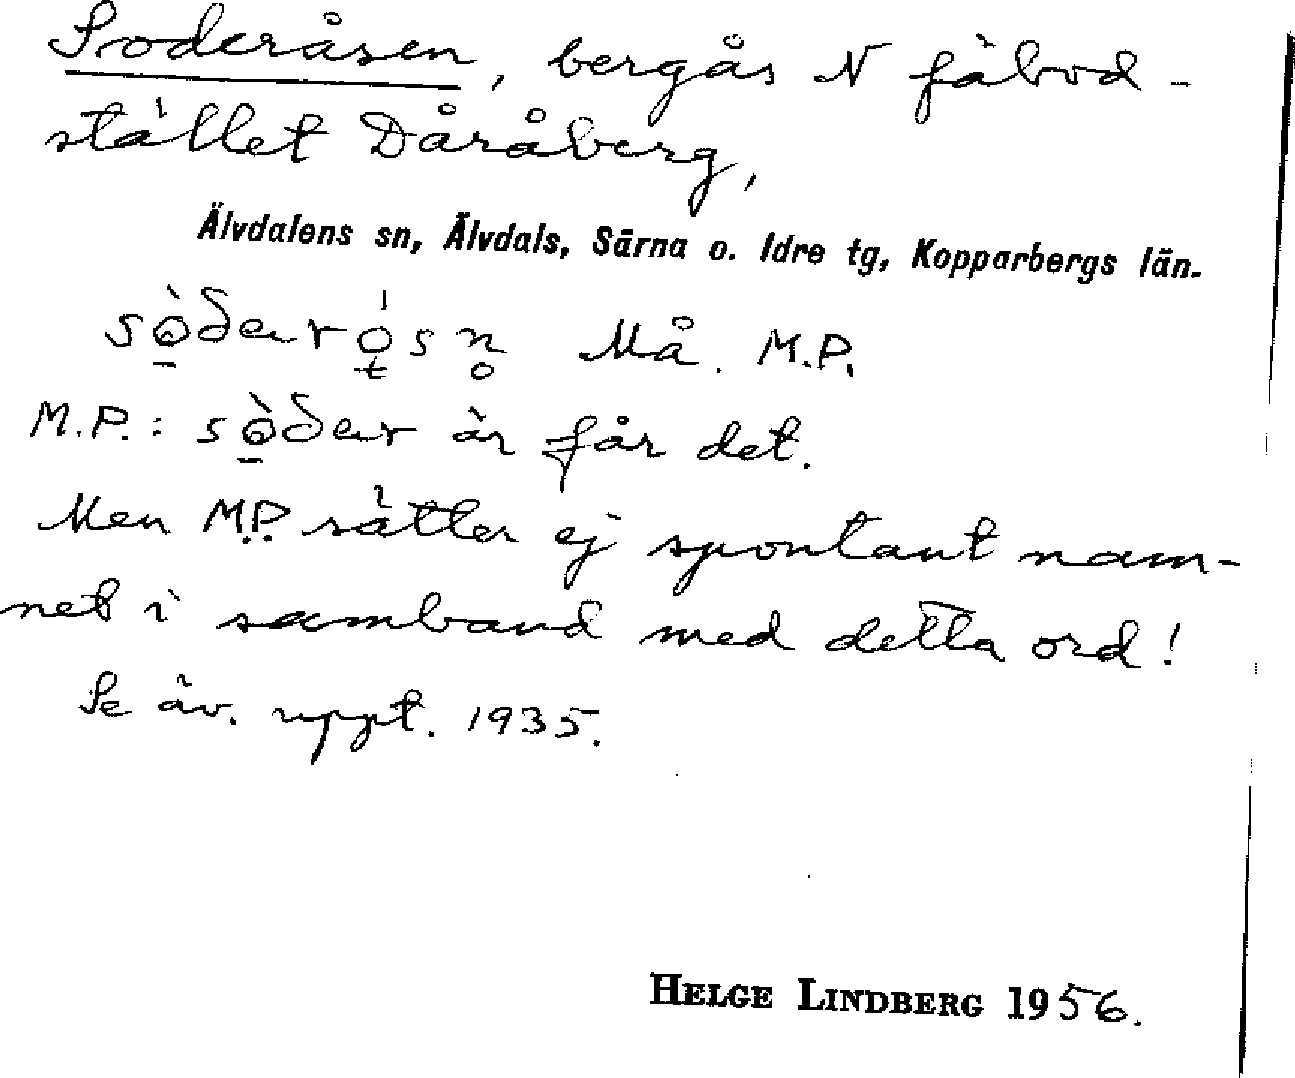 Soderåsen, bergås N fäbod-
stället Dåråberg,
Älvdalens sn, Älvdals, Särna o. Idre tg, Kopparbergs län.
Må. M.P.
M.P.: är får det.
Men M.P. sätter ej spontant nam-
net i samband med detta ord!
Se äv. uppt. 1935.
HELGE LINDBERG 1956.